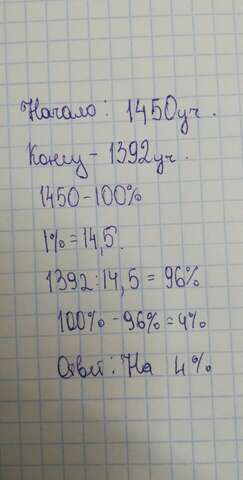 Начало: 1450уч.
Концу - 1392уч.
1450-100%
1%=14,5.
1392:14,5=96%
100%-96%=4%
Ответ: На 4%